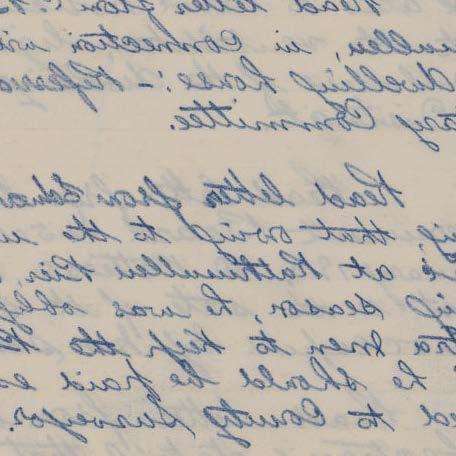 Read letter from
mullen, in connection wi
dwelling house :- Referre
ary Committee.
Read letter from Edwar
that owing to the
at Rathmullen Pier,
season, he was oblig
tra men to keep the
he should be paid ex
ed to County Surveyor.